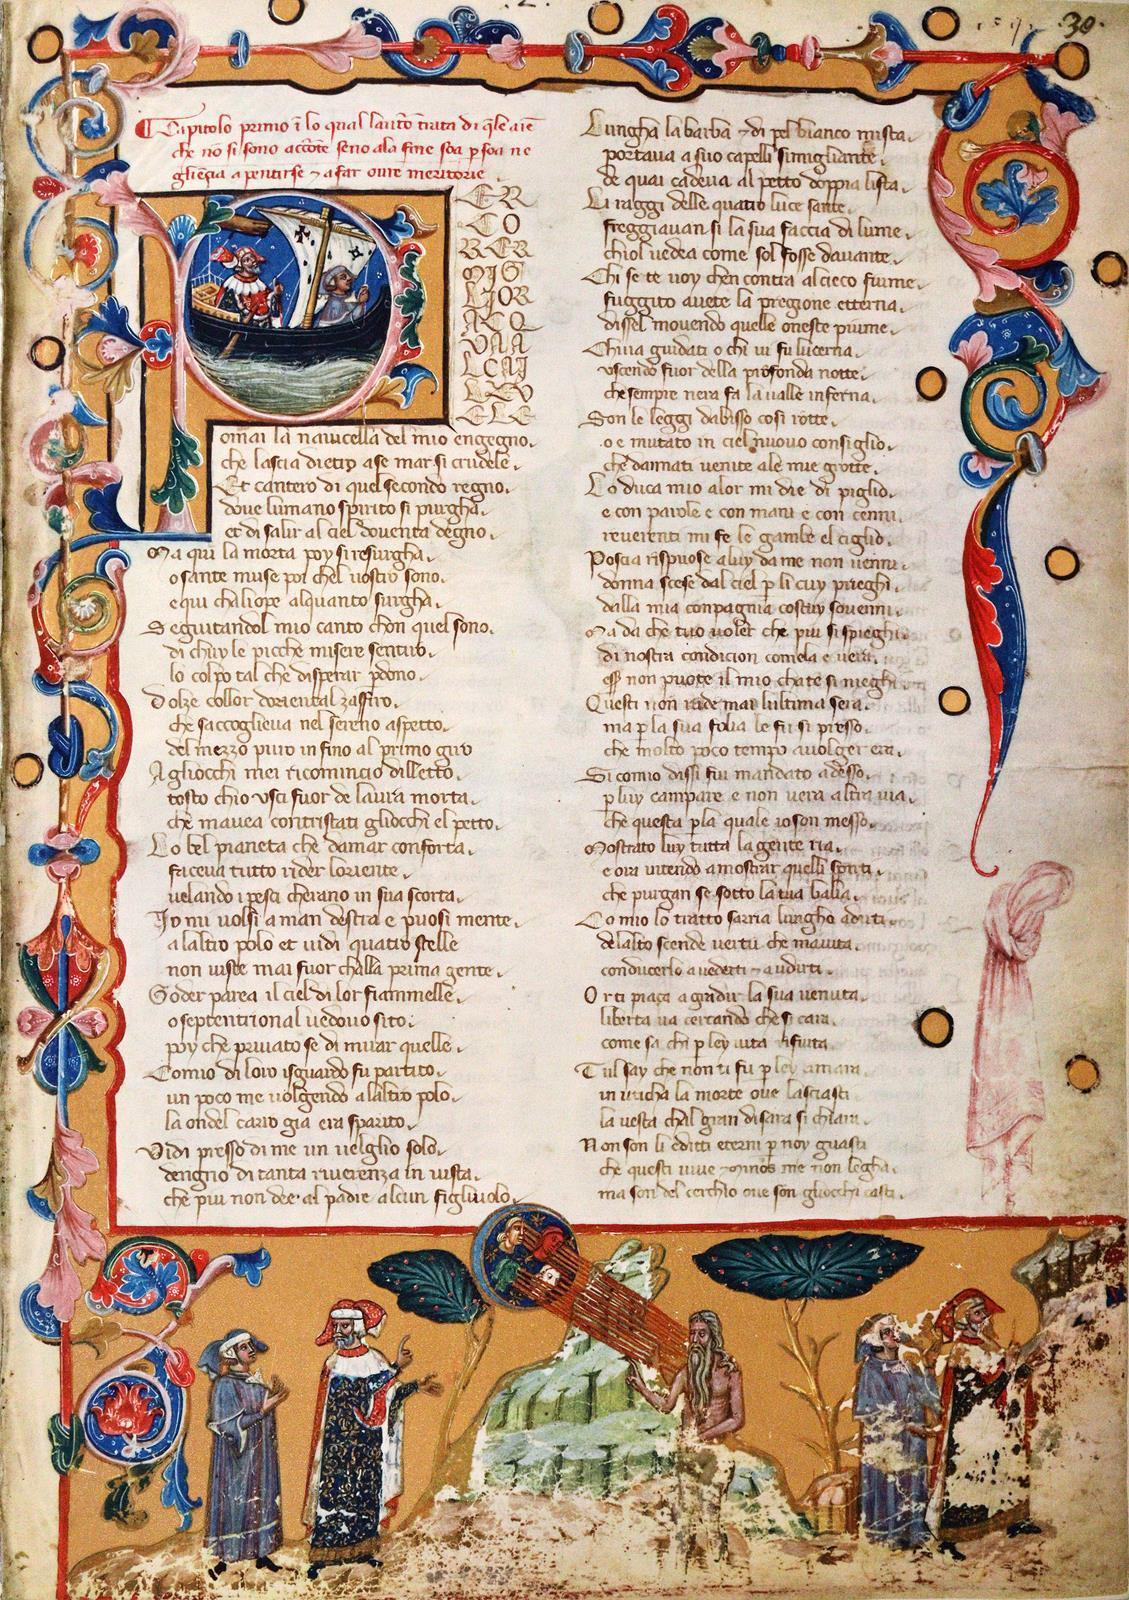 30
Capitolo primo i lo qual lauto trata di qle aie
che no si sono accote seno ala fine soa p soa ne
gliegia a pentirse 7 a far oure meritorie
ER
CO
RER
MIG
LIOR
ACQ
VAA
LCAI
LEV
ELE
P
omai la nauicella del mio engegno.
che lascia dietro a se mar si crudele.
Et cantero di quel secondo regno.
doue lumano spirito si purgha.
et di salir al ciel douenta degno.
Ma qui la morta poy si resurgha.
o sante muse poi chel uostro sono.
e qui chaliope alquanto surgha.
Seguitandol mio canto chon quel sono.
di chuy le picche misere sentiro.
lo colpo tal che disperar pdono.
Dolze collor doriental zaffiro.
che saccoglieua nel sereno aspetto.
del mezzo puro in fino al primo giro
Agliocchi mei ricomincio dilletto.
tosto chio usci fuor de laura morta.
che mauea contristati gliocchi el petto.
Lo bel pianeta che damar conforta.
faceua tutto rider loriente.
uelando i pesci cherano in sua scorta.
Iy mi uolsi a man destra e puosi mente.
a laltro polo et uidi quatro stelle
non uiste mai fuor challa prima gente.
Goder parea il ciel di lor fiammelle.
o septentrional uedouo sito.
poy che priuato se di mirar quelle.
Comio di loro isguardo fu partito.
un poco me uolgendo a laltro polo.
la ondel carro gia era sparito.
Vidi presso di me un uelglio solo.
dengno di tanta riuerenza in uista.
che piu non dee al padre alcun figliuolo.
Lungha la barba 7 di pel bianco mista.
portaua a suo capelli simigliante.
de quai cadeua al petto doppia lista.
Li raggi delle quatro luce sante.
freggiauan si la sua faccia di lume.
chiol uedea come sol fosse dauante.
Chi se te uoy chen contra al cieco fiume
fuggito auete la pregione etterna.
dissel mouendo quelle oneste piume.
Chi ua guidati o chi ui fu lucerna.
uscendo fuor della profonda notte.
che sempre nera fa la ualle inferna.
Son le leggi dabisso cosi rotte.
o e mutato in ciel nuouo consiglio.
che dannati uenite ale mie grotte.
Lo duca mio alor mi die di piglio.
e con parole e con mani e con cenni.
reuerenti mi fe le gambe el ciglio.
Poscia rispuose a luy da me non uenni.
donna scese dal ciel p li cuy prieghi.
dalla mia conpagnia costuy souenni.
Ma da che tuo uoler che piu si spieghi.
di nostra condicion comela e uera.
esser non puote il mio cha te si nieghi.
Questi non uide mai lultima sera.
ma p la sua folia le fu si presso.
che molto poco tempo a uolger era.
Si comio dissi fui mandato adesso.
p luy campare e non uera altra uia.
che questa p la quale io son messo.
Mostrato luy tutta la gente ria.
e ora intendo a mostrar quelli spirti.
che purgan se sotto la tua balia.
Comio lo tratto sarria lungho a dirti.
delalto scende uertu che mauita.
conducerlo a uederti 7 a udirti.
Or ti piaça a gradir la sua uenuta.
liberta ua cercando che si cara.
come sa chi p ley uita rifiuta.
Tul say che non ti fu p ley amara.
in uticha la morte oue lasciasti
la uesta chal gran di sara si chiara.
Non son li editti eterni p noy guasti
che questi uiue 7 minos me non legha.
ma son del cerchio oue son gliocchi casti.